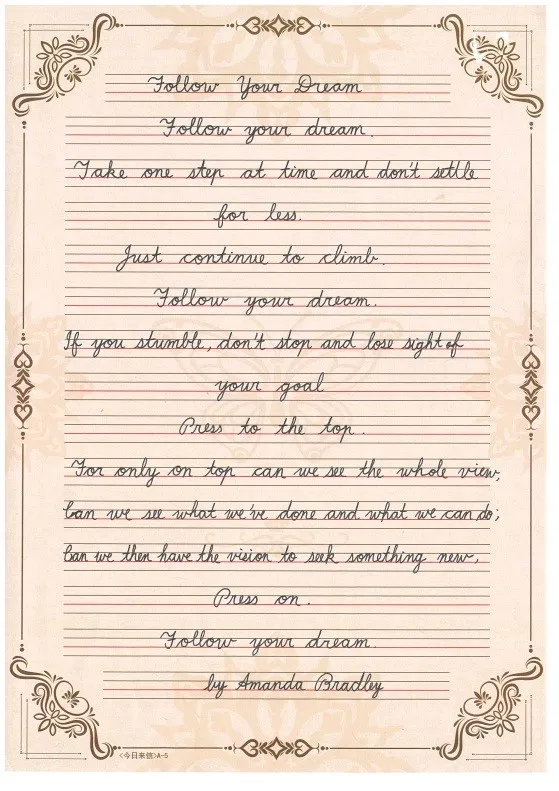 Follow Your Dream
Follow your dream.
Take one step at time and don't settle
for less.
Just continue to climb.
Follow your dream.
If you stumble, don't stop and lose sight of
your goal
Press to the top.
For only on top can we see the whole view,
Can we see what we've done and what we can do;
Can we then have the vision to seek something new,
Press on.
Follow your dream.
by Amanda Bradley
《今日来信》A-5